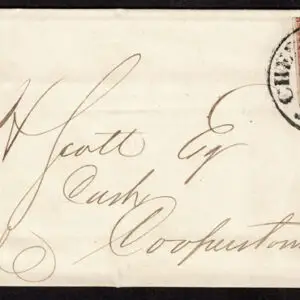 CHE
H Scott Eq
Cash
Cooperstow